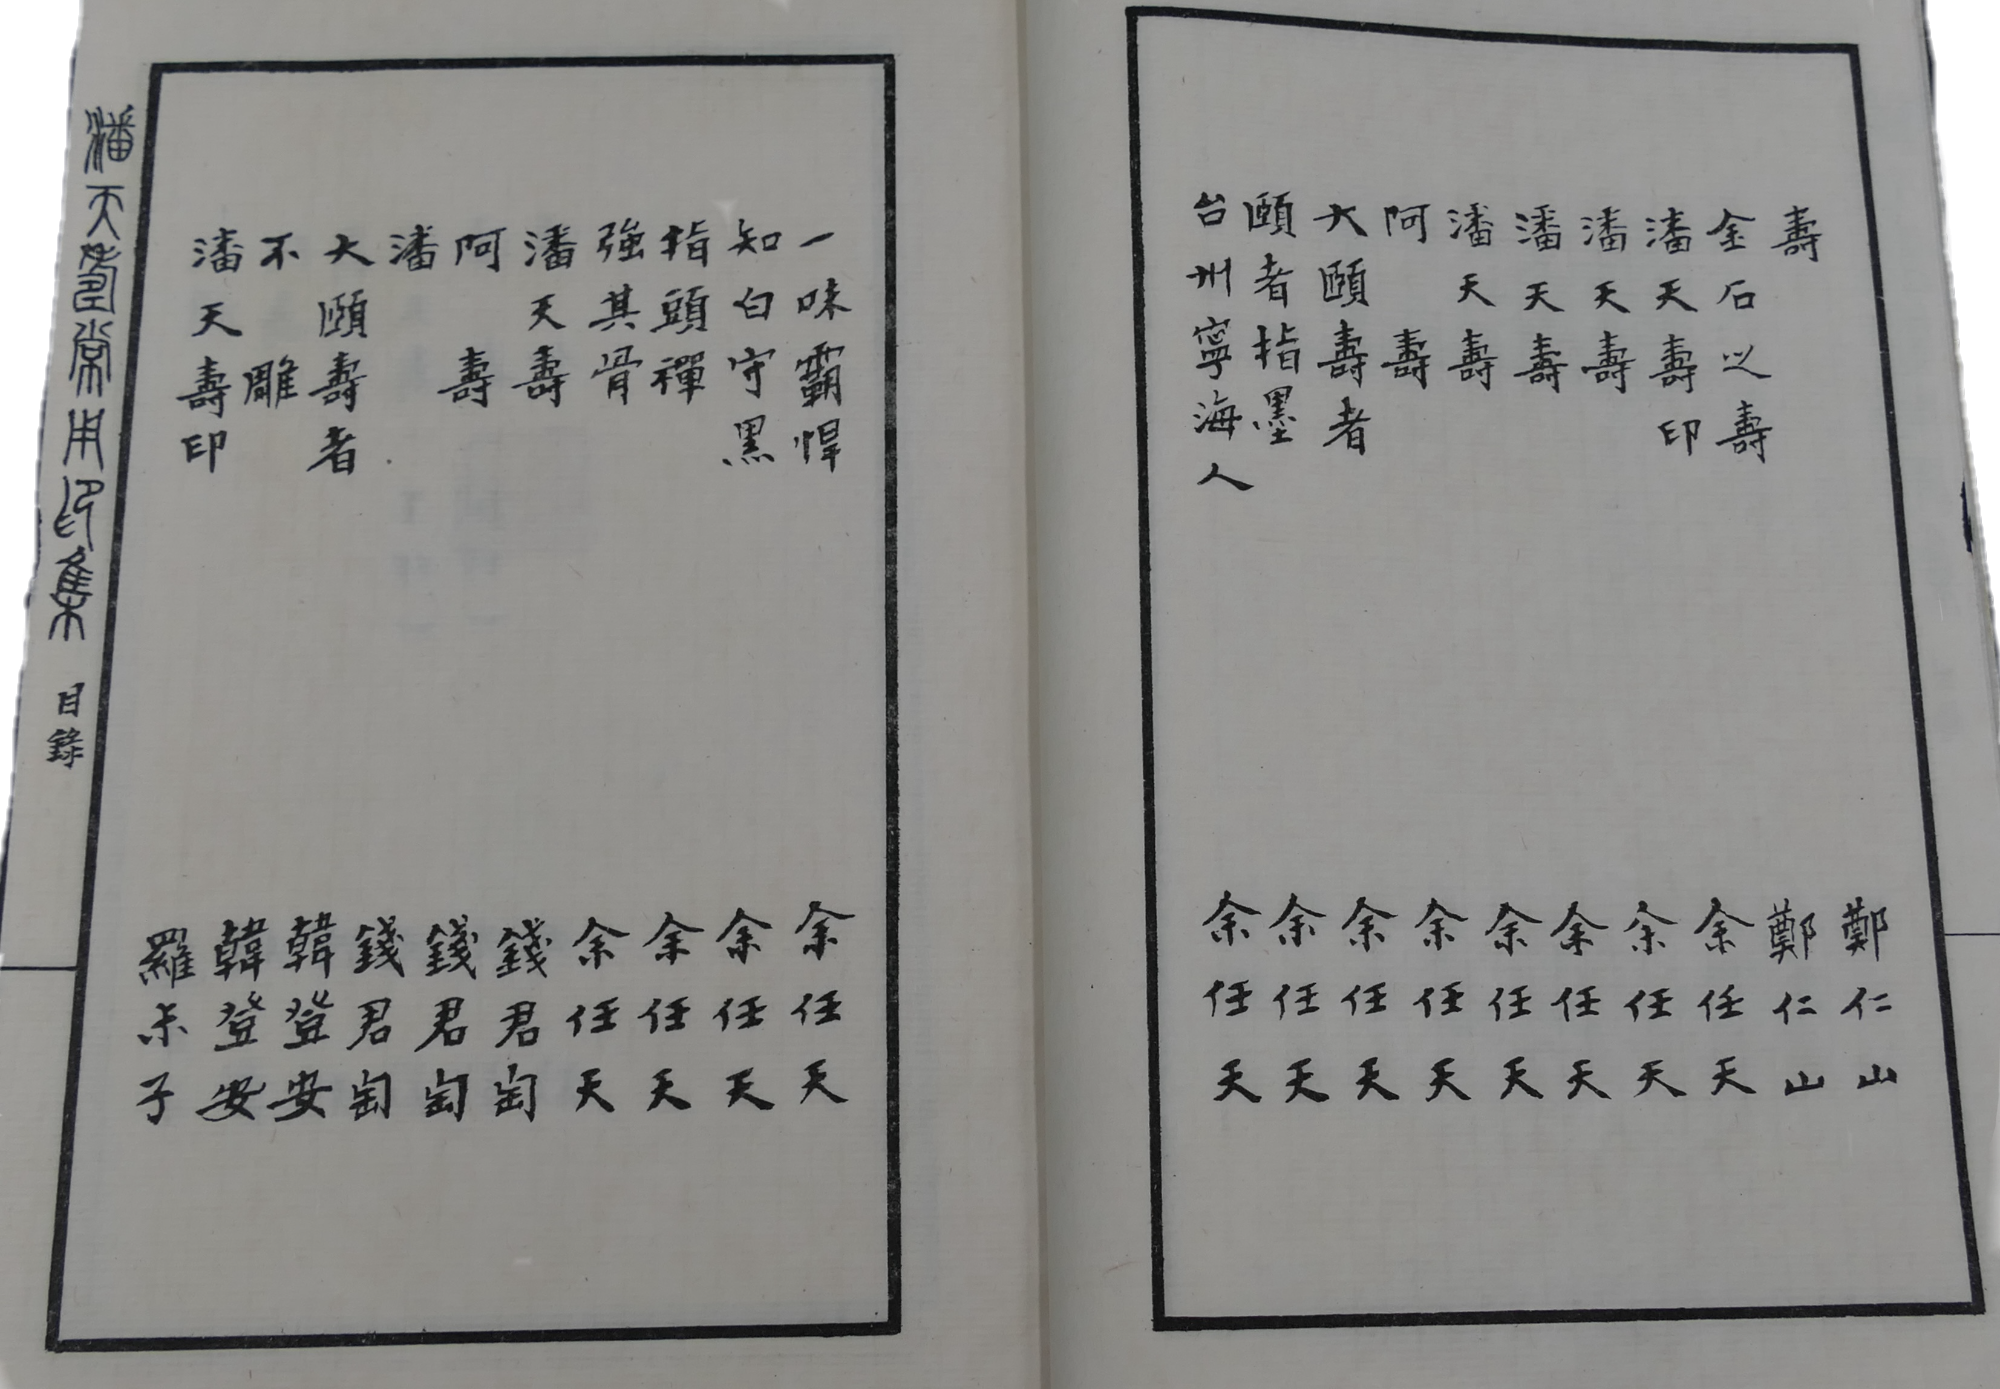 壽 鄭仁山
金石之壽 鄭仁山
潘天壽印 余任天
潘天壽 余任天
潘天壽 余任天
潘天壽 余任天
阿壽 余任天
大頤壽者 余任天
頤者指墨 余任天
台州寧海人 余任天
一味霸悍 余任天
知白守黑 余任天
指頭禪 余任天
強其骨 余任天
潘天壽 錢君匋
阿壽 錢君匋
潘 錢君匋
大頤壽者 韓登安
不雕 韓登安
潘天壽印 羅尗子
潘天壽常用印集 目錄